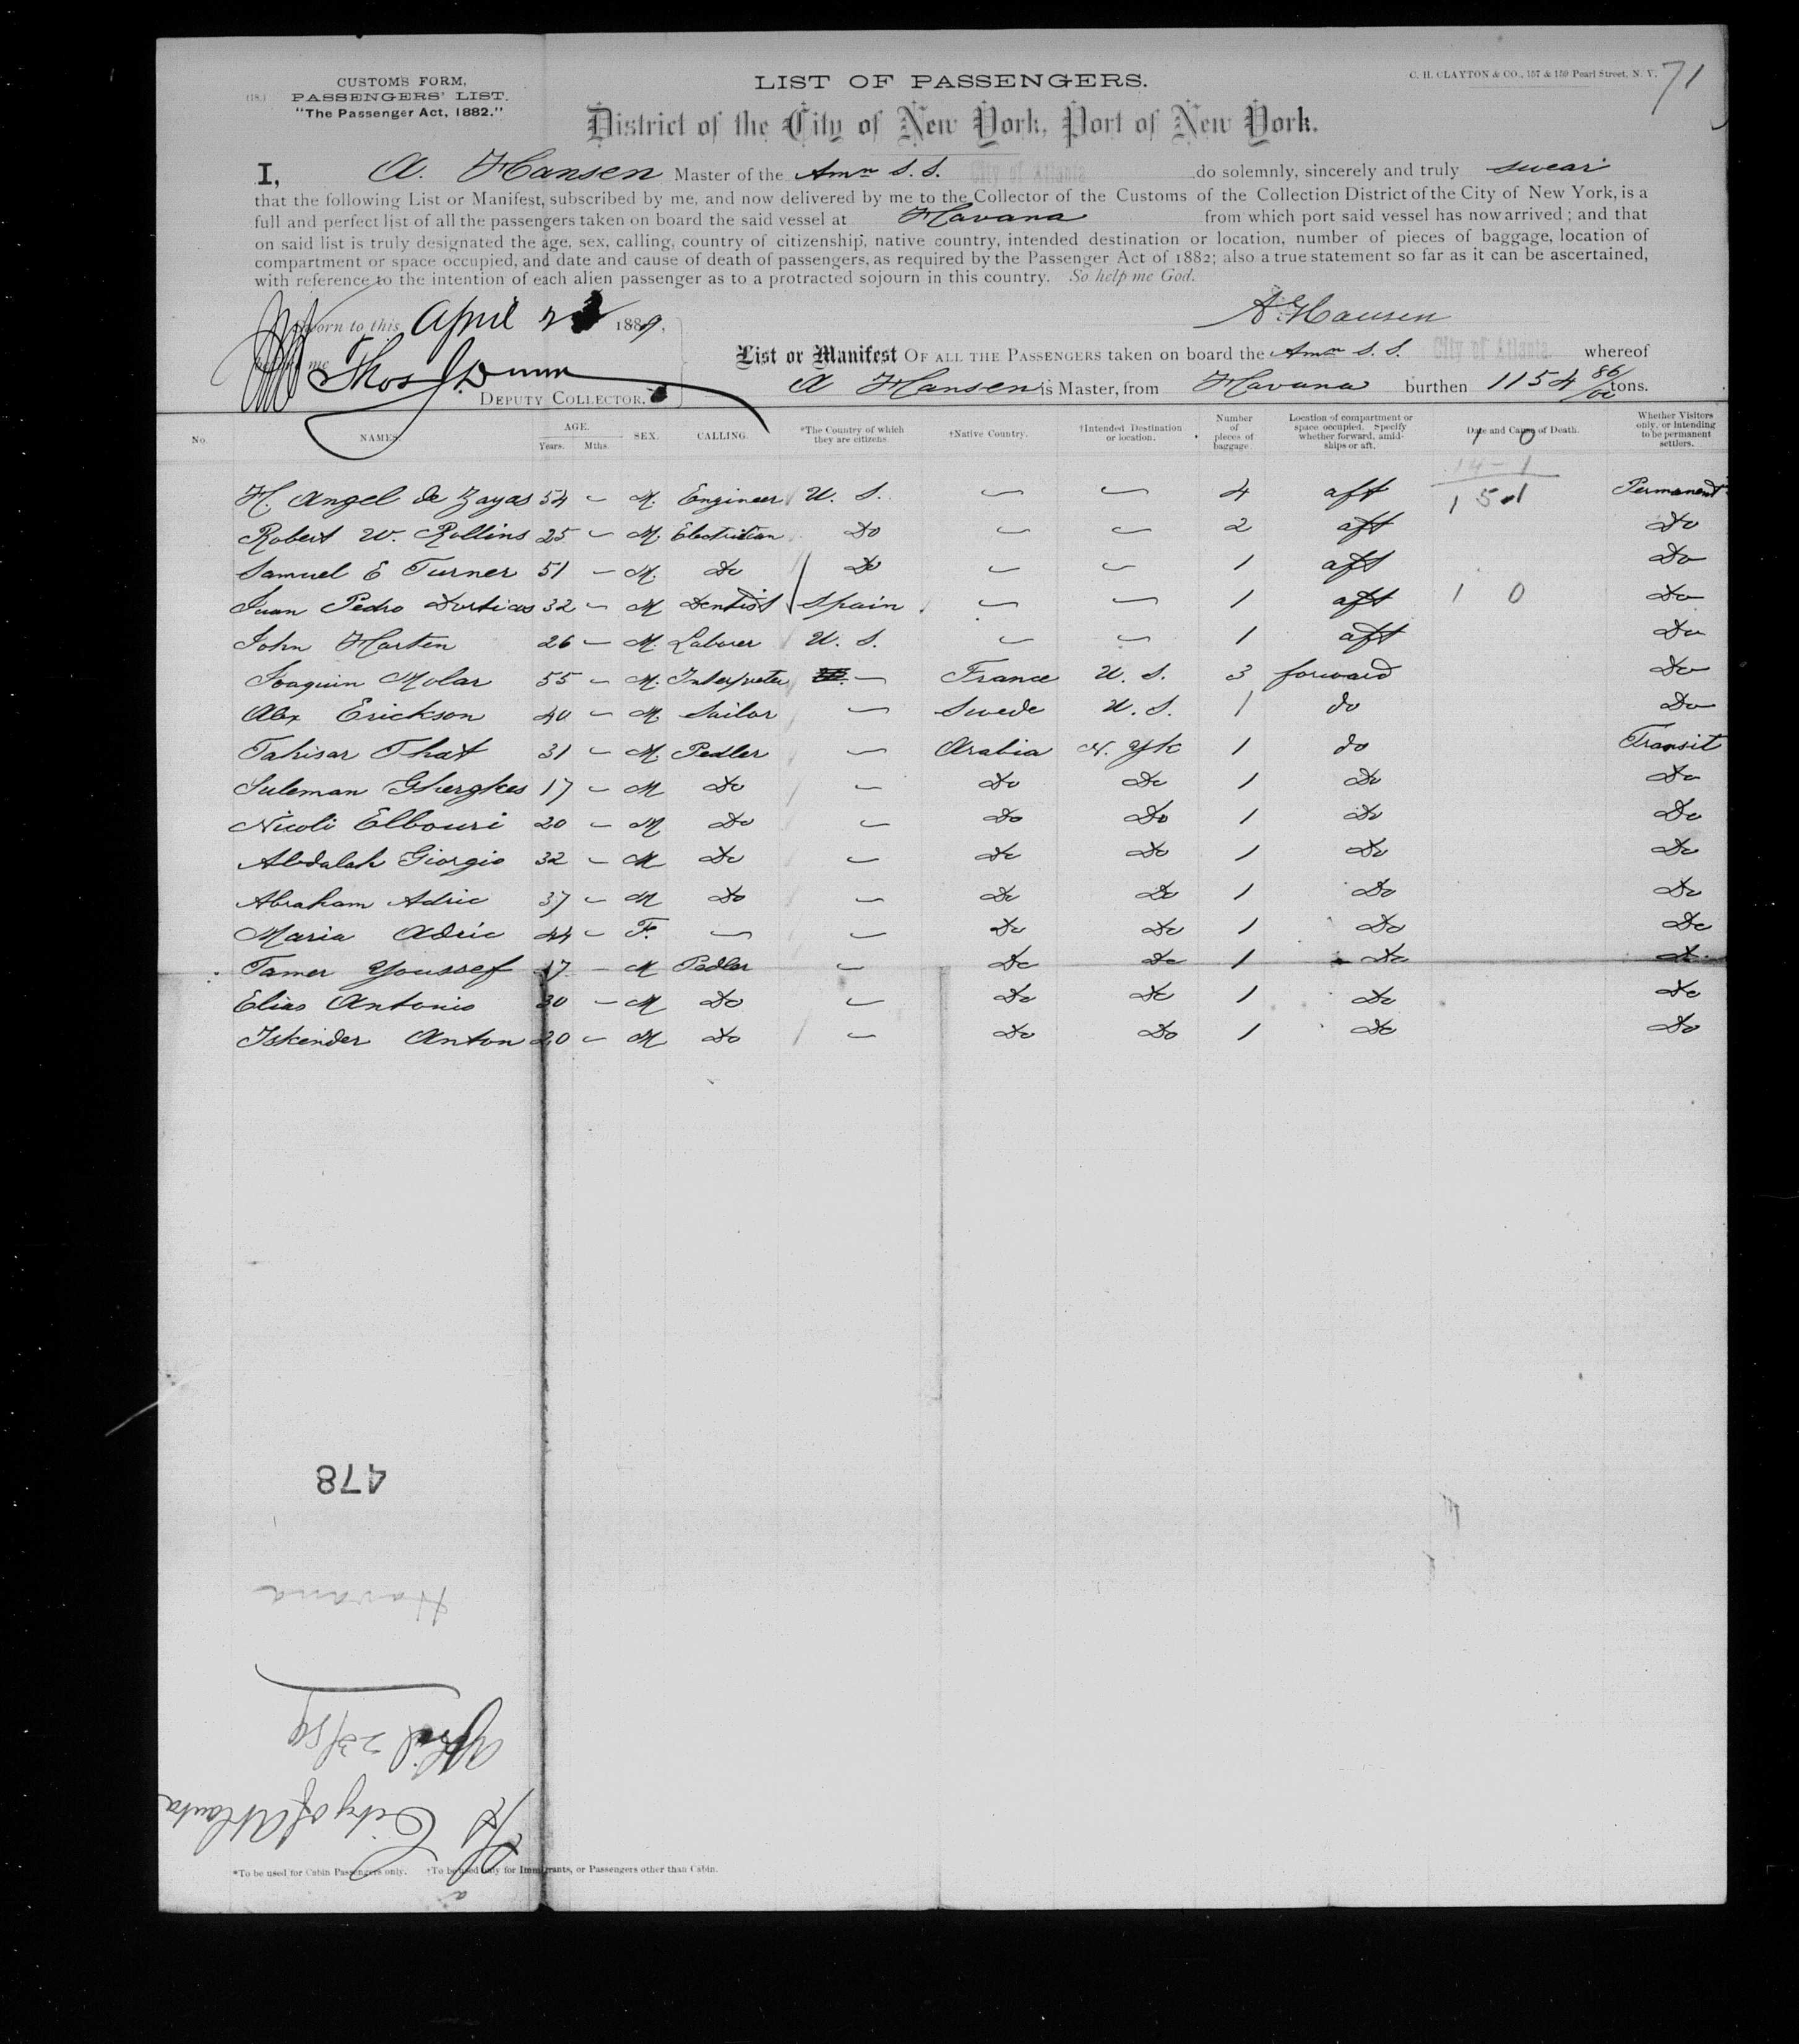 CUSTOMS FORM,
(18.) PASSENGERS' LIST.
"The Passenger Act, 1882."
LIST OF PASSENGERS.
C. H. CLAYTON & CO., 157 & 159 Pearl Street, N. Y.
71
District of the City of New York, Port of New York.
I, A. Hansen Master of the Amn S. S. City of Atlanta do solemnly, sincerely and truly swear
that the following List or Manifest, subscribed by me, and now delivered by me to the Collector of the Customs of the Collection District of the City of New York, is a
full and perfect list of all the passengers taken on board the said vessel at Havana from which port said vessel has now arrived; and that
on said list is truly designated the age, sex, calling, country of citizenship, native country, intended destination or location, number of pieces of baggage, location of
compartment or space occupied, and date and cause of death of passengers, as required by the Passenger Act of 1882; also a true statement so far as it can be ascertained,
with reference to the intention of each alien passenger as to a protracted sojourn in this country. So help me God.
Sworn to this April 1889,
A. Hansen
me Thos J. Dunn
DEPUTY COLLECTOR.
List or Manifest OF ALL THE PASSENGERS taken on board the Amn S. S. City of Atlanta whereof
A Hansen is Master, from Havana burthen 1154 86/00 tons.
No. NAMES. AGE. Years. Mths. SEX. CALLING. *The Country of which they are citizens. †Native Country. †Intended Destination or location. Number of pieces of baggage Location of compartment or space occupied. Specify whether forward, amidships or aft. Date and Cause of Death. Whether Visitors only, or intending to be permanent settlers.
1 0
14 - 1
H. Angel de Zayas 54 - M. Engineer U. S. - - 4 aft 15 1 Permanent
Robert W. Rollins 25 - M. Electrician Do - - 2 aft Do
Samuel E Turner 51 - M. Do Do - - 1 aft Do
Juan Pedro Dorticos 32 - M Dentist Spain - - 1 aft 1 0 Do
John Harten 26 - M. Laborer U. S. - - 1 aft Do
Joaquin Molar 55 - M. Interpreter - France U. S. 3 forward Do
Alex Erickson 40 - M. Sailor - Swede U. S. 1 do Do
Tahisar That 31 - M. Pedler - Arabia N. Yk 1 do Transit
Suleman Gherghes 17 - M Do - Do Do 1 Do Do
Nicoli Elbouri 20 - M Do - Do Do 1 Do Do
Abdalah Giorgio 32 - M Do - Do Do 1 Do Do
Abraham Adric 37 - M Do - Do Do 1 Do Do
Maria Adric 44 - F. - - Do Do 1 Do Do
Tamer Youssef 17 - M Pedler - Do Do 1 Do Do
Elias Antonio 30 - M Do - Do Do 1 Do Do
Iskender Anton 20 - M Do - Do Do 1 Do Do
478
Havana
April 23/89
SS City of Atlanta
*To be used for Cabin Passengers only. †To be used only for Immigrants, or Passengers other than Cabin.